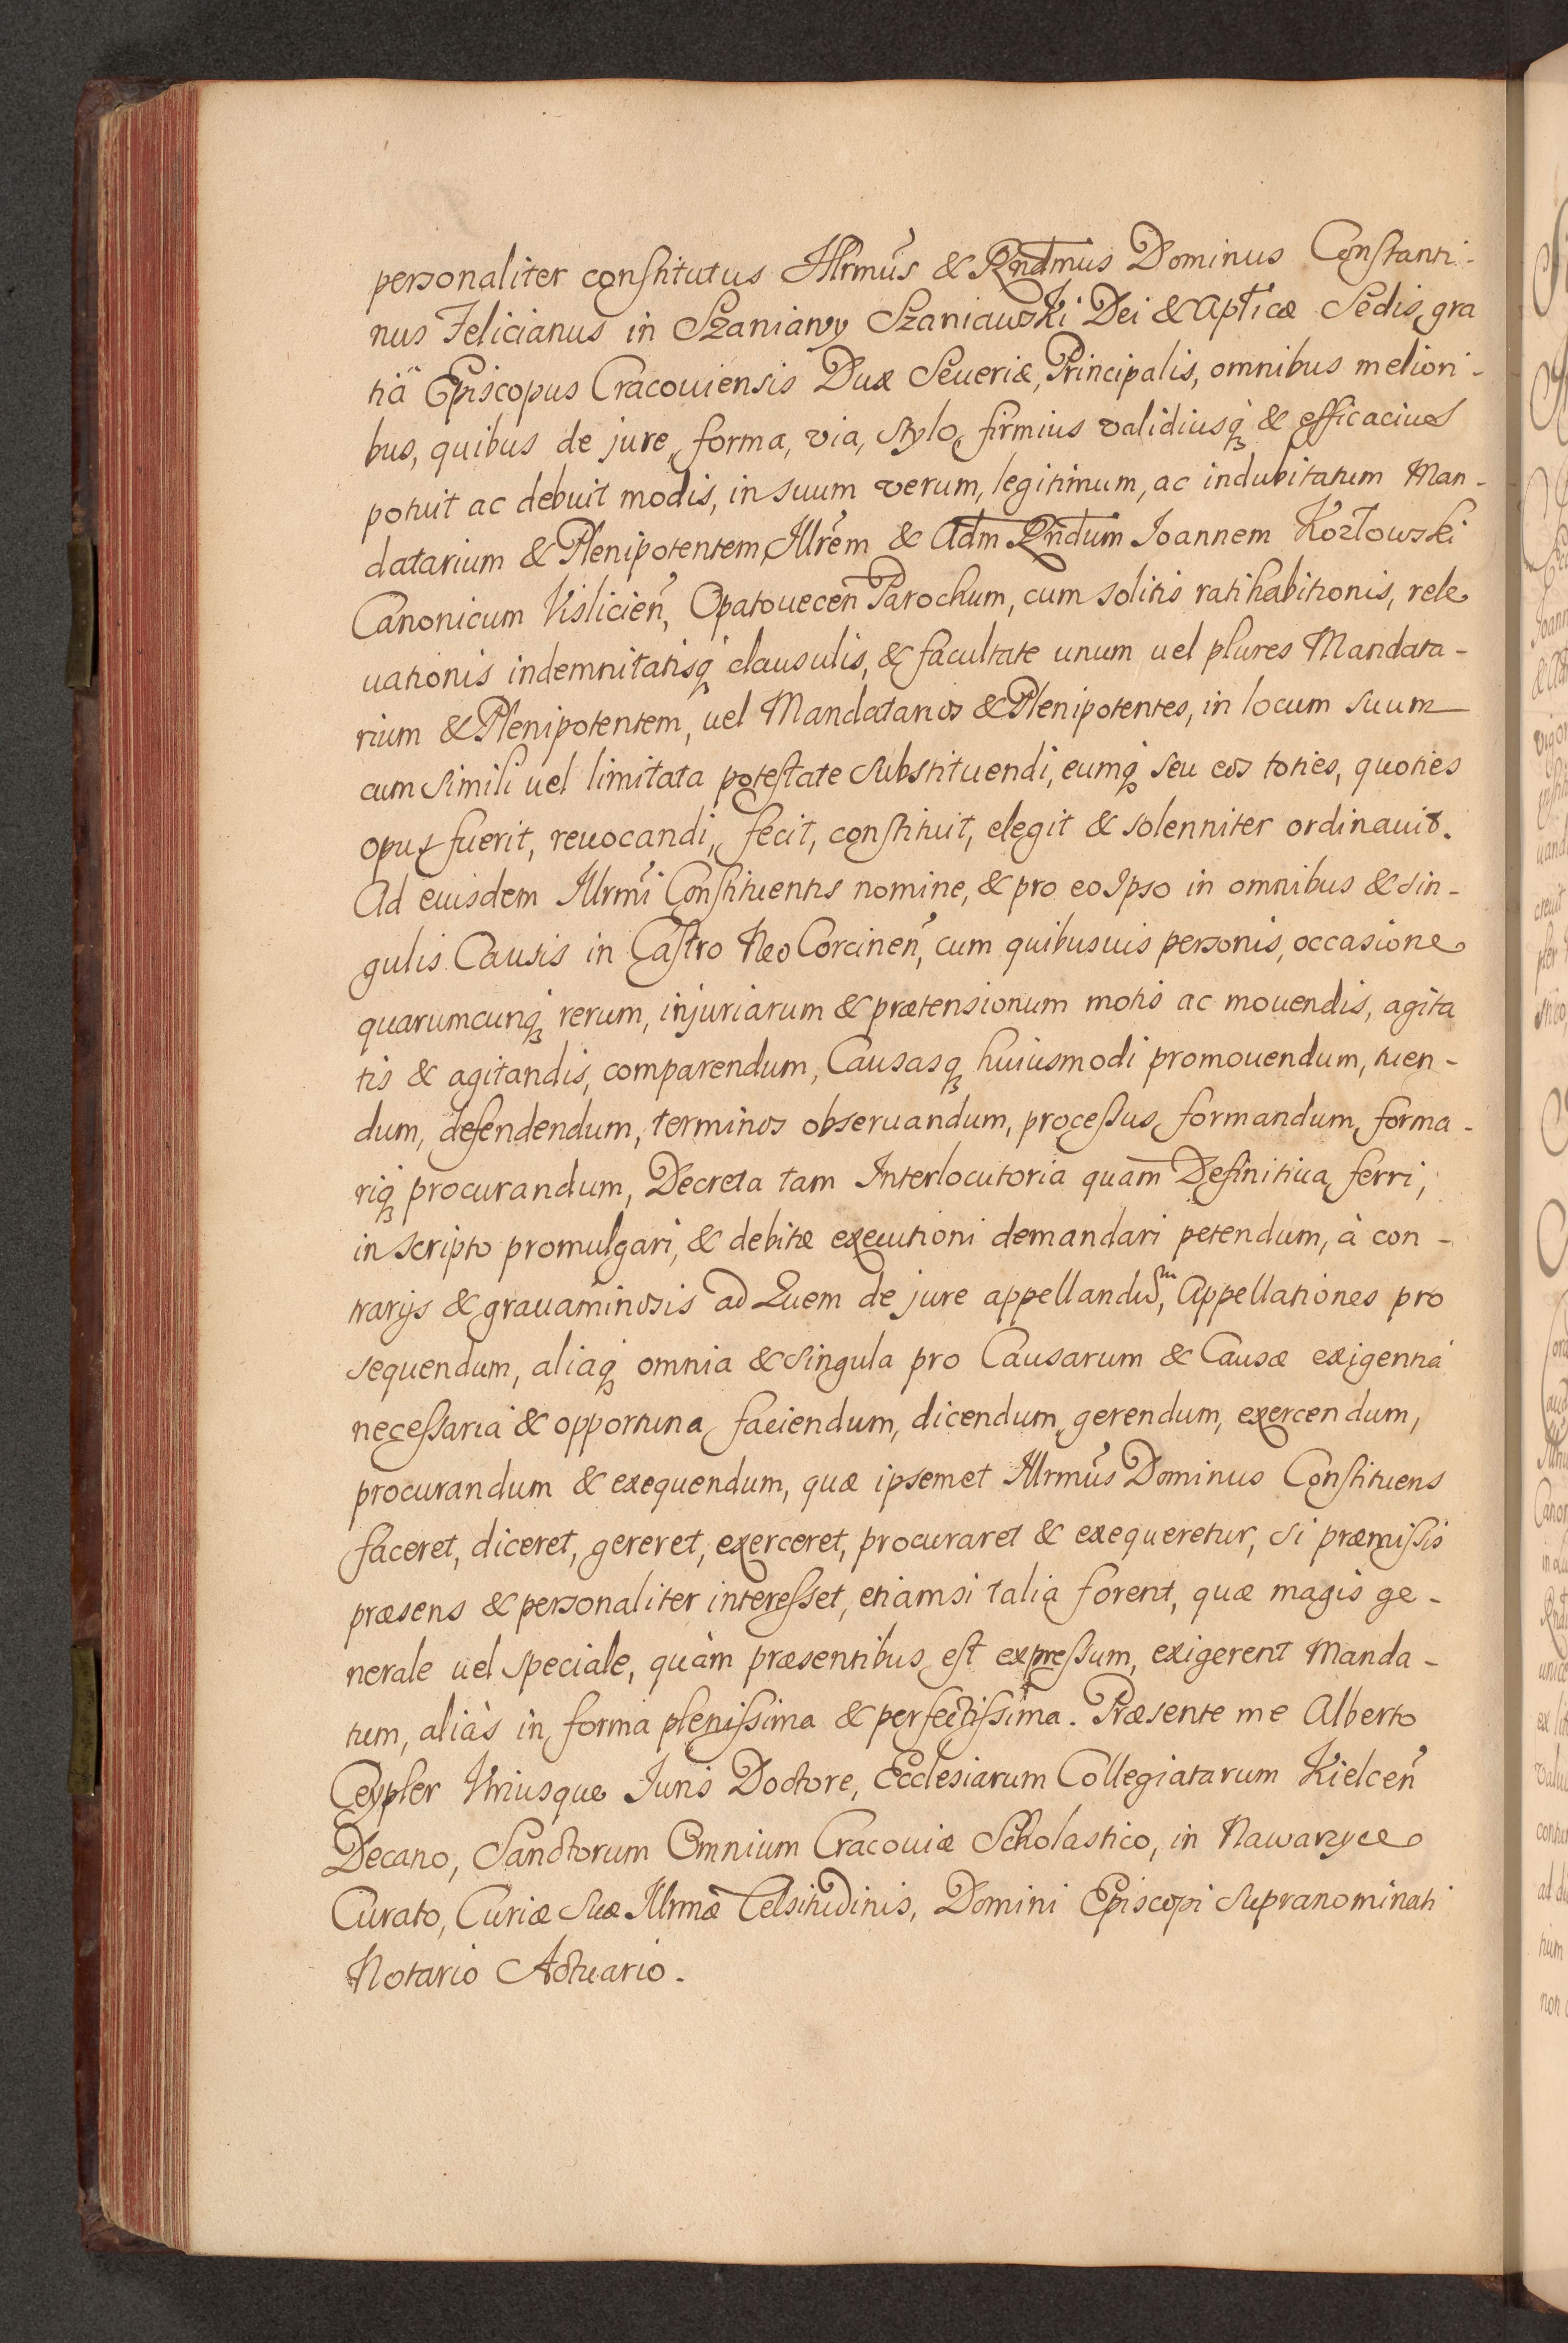 personaliter constitutus Illrmus & Rndmus Dominus Constanti-
nus Felicianus in Szaniawy Szaniawski Dei & Aplicæ Sedis gra
tia Episcopus Cracouiensis Dux Seueriæ, Principalis, omnibus meliori-
bus, quibus de jure, forma, via, stylo, firmius validiusq & efficacius
potuit ac debuit modis, in suum verum, legitimum, ac indubitatum Man-
datarium & Plenipotentem, Illrem & Adm Rndum Ioannem Kozłowski
Canonicum Vislicien, Opatouecen Parochum, cum solitis ratihabitionis, rele
uationis indemnitatisq clausulis, & facultate unum uel plures Mandata-
rium & Plenipotentem, uel Mandatarios & Plenipotentes, in locum suum
cum simili uel limitata potestate substituendi, eumq seu eos toties, quoties
opus fuerit, reuocandi, fecit, constituit, elegit & solenniter ordinauit.
Ad euisdem Illrmi Constituentis nomine, & pro eo Ipso in omnibus & sin-
gulis Causis in Castro Neo Corcinen, cum quibusuis personis, occasione
quarumcunq rerum, injuriarum & prætensionum motis ac mouendis, agita
tis & agitandis, comparendum, Causasq huiusmodi promouendum, tuen-
dum, defendendum, terminos obseruandum, processus formandum, forma-
riq procurandum, Decreta tam Interlocutoria quam Definitiua ferri,
in scripto promulgari, & debitæ executioni demandari petendum, à con-
trarijs & grauaminosis ad Quem de jure appellandum, Appellationes pro
sequendum, aliaq omnia & singula pro Causarum & Causæ exigentia
necessaria & opportuna faciendum, dicendum, gerendum, exercendum,
procurandum & exequendum, quæ ipsemet Illrmus Dominus Constituens
faceret, diceret, gereret, exerceret, procuraret & exequeretur, si præmissis
præsens & personaliter interesset, etiamsi talia forent, quæ magis ge-
nerale uel speciale, quàm præsentibus est expressum, exigerent Manda-
tum, aliàs in forma plenissima & perfectissima. Præsente me Alberto
Ceypler Vtriusque Iuris Doctore, Ecclesiarum Collegiatarum Kielcen
Decano, Sanctorum Omnium Cracouiæ Scholastico, in Nawarzyce
Curato, Curiæ Suæ Illrmæ Celsitudinis, Domini Episcopi supranominati
Notario Actuario.